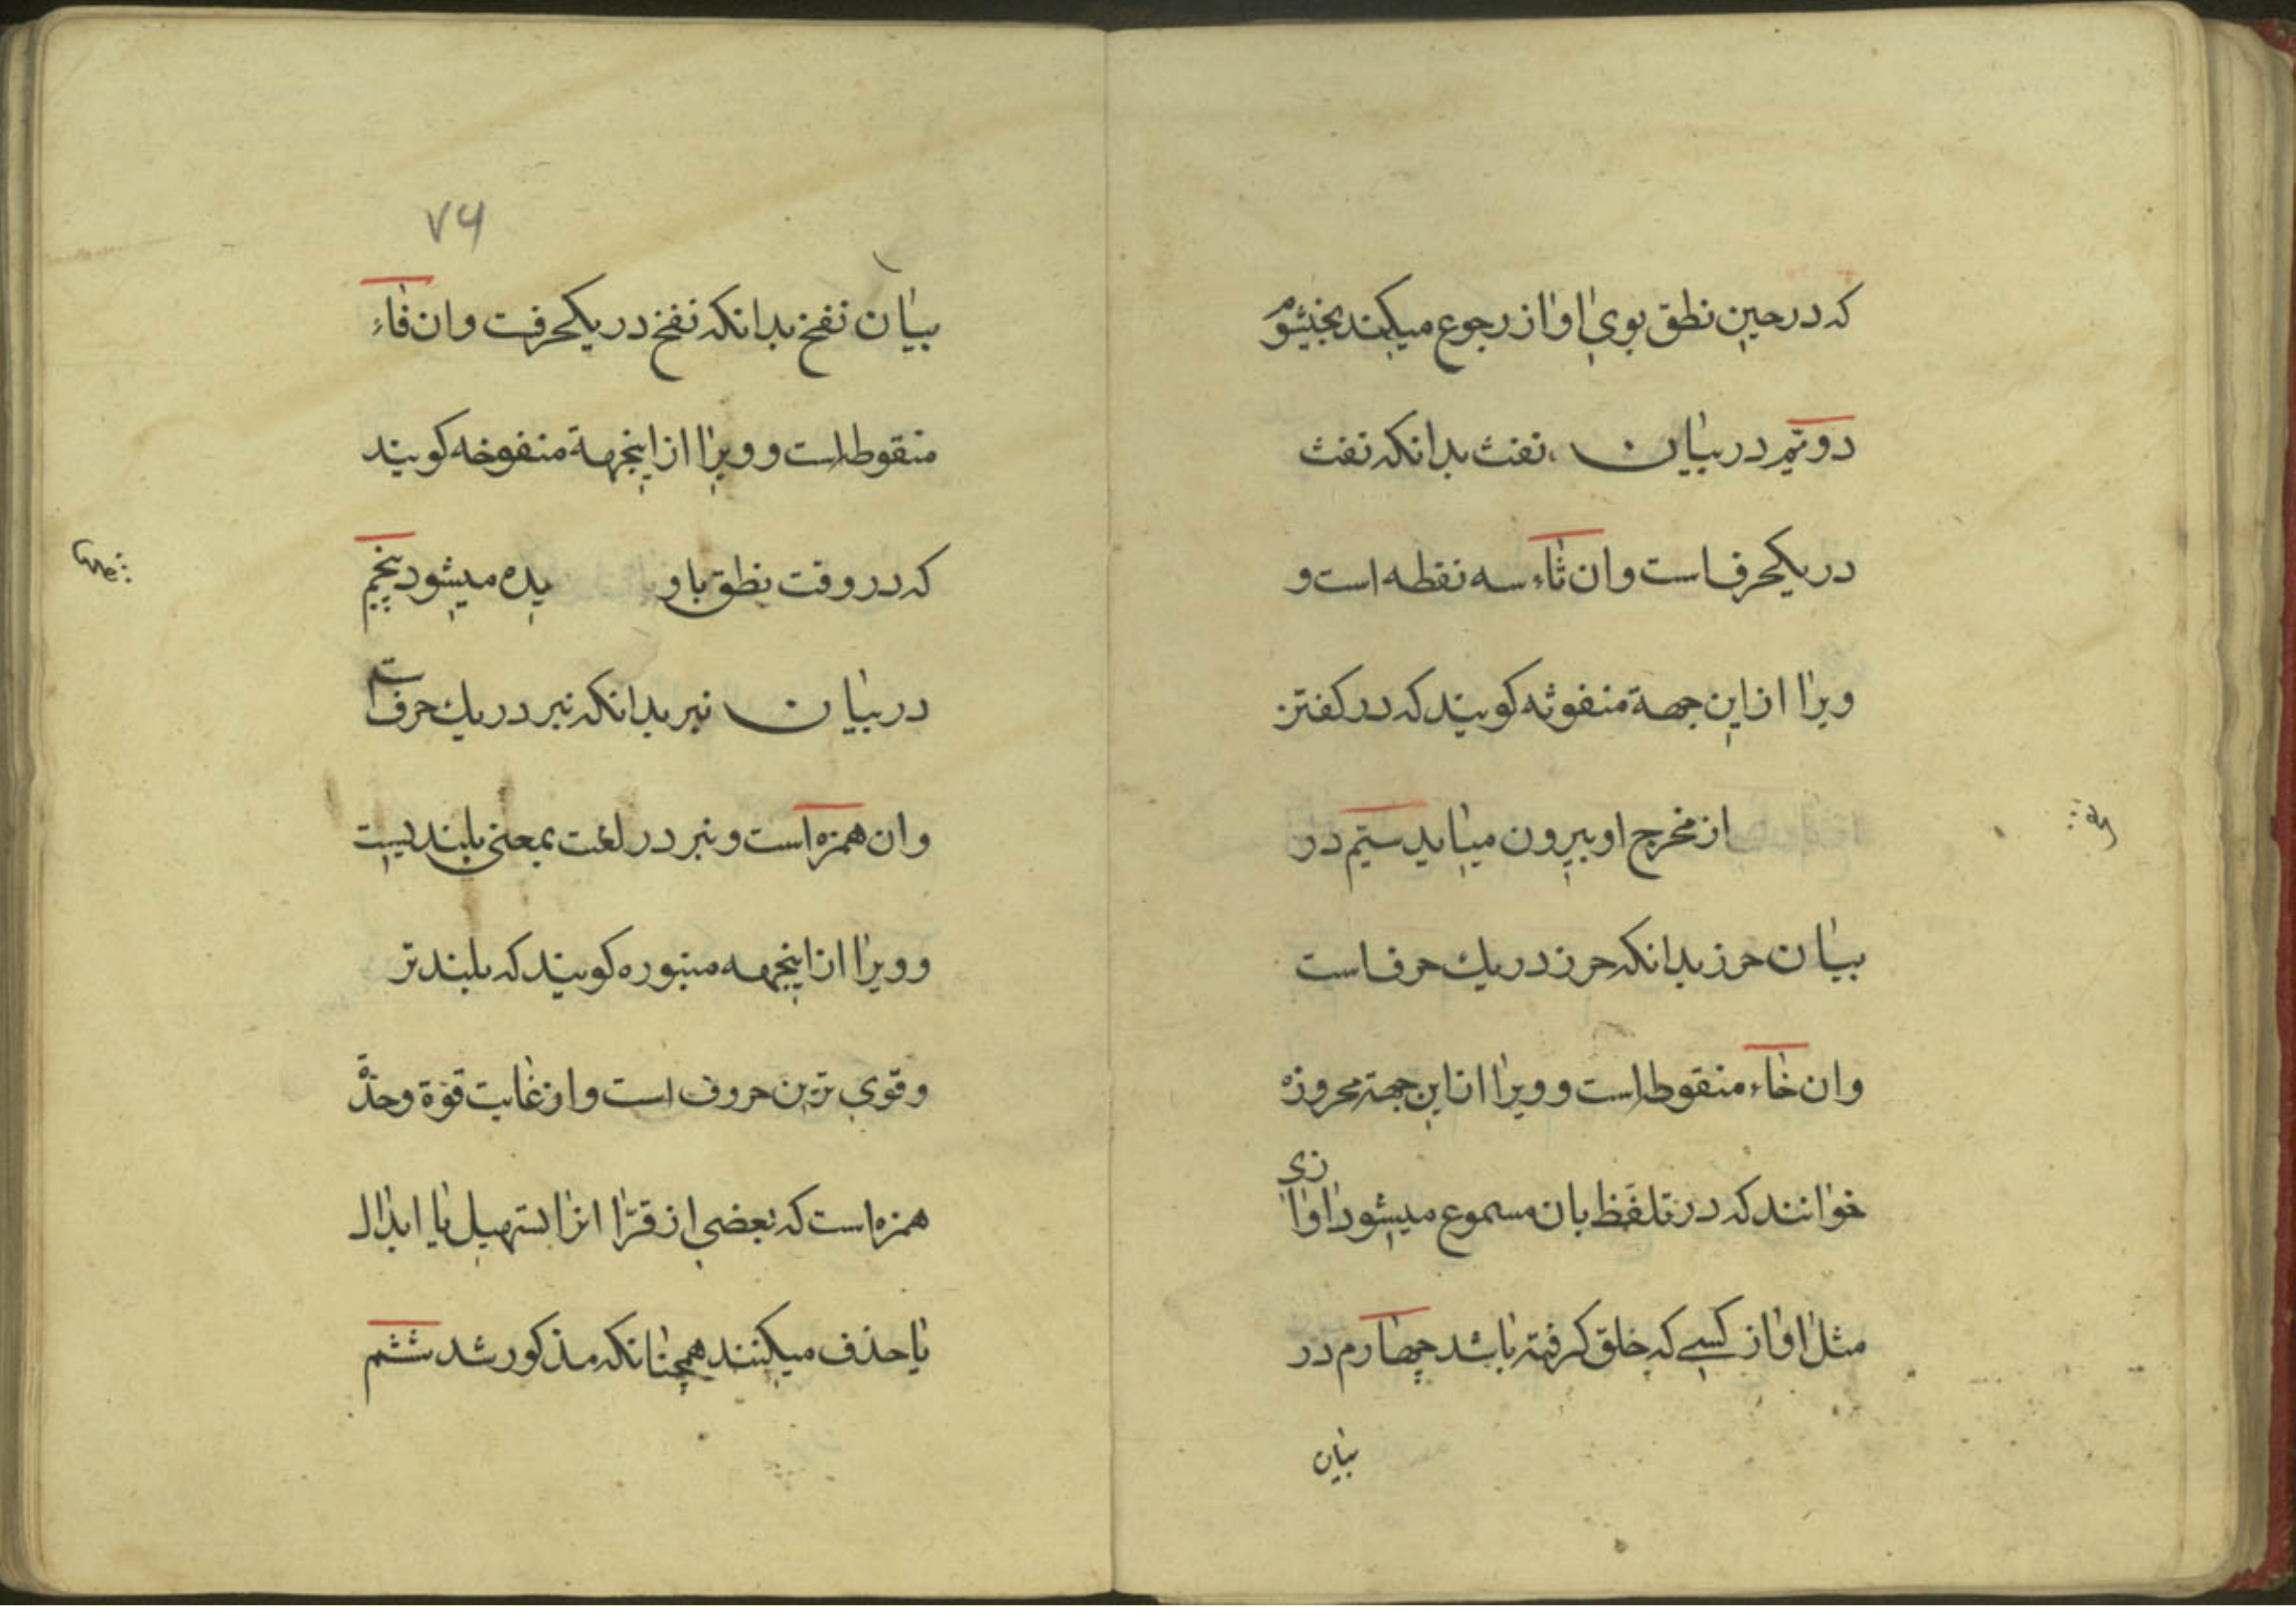 که در حین نطق بوی اواز رجوع میکند بخیشوم
دویم در بیان نفث بدانکه نفث
در یکحرف است وان ثاء سه نقطه است و
ویرا از این جهة منفوثه کویند که در کفتن
از مخرج او بیرون میاید سیّم در
بیان حرز بدانکه حرز در یك حرف است
وان خاء منقوط است و ویرا از این جهة محروزه
خوانند که در تلفّظ بان مسموع میشود اوازی
مثل اواز کسی که خلق کرفته باشد چهارم در
بیان
۷۶
بیان نفخ بدانکه نفخ در یکحرفت وان فاء
منقوط است و ویرا از اینجهة منفوخه کویند
که در وقت نطق باو یده میشود پنجم
در بیان نبر بدانکه نبر در یك حرف است
وان همزه است و نبر در لغت بمعنی بلندیست
و ویرا از اینجهه منبوره کویند که بلندتر
و قوی ترین حروف است و از غایت قوّة و حدّة
همزه است که بعضی از قرّا انرا بتسهیل یا ابدال
یا حذف میکنند همچنانکه مذکور شد ششم